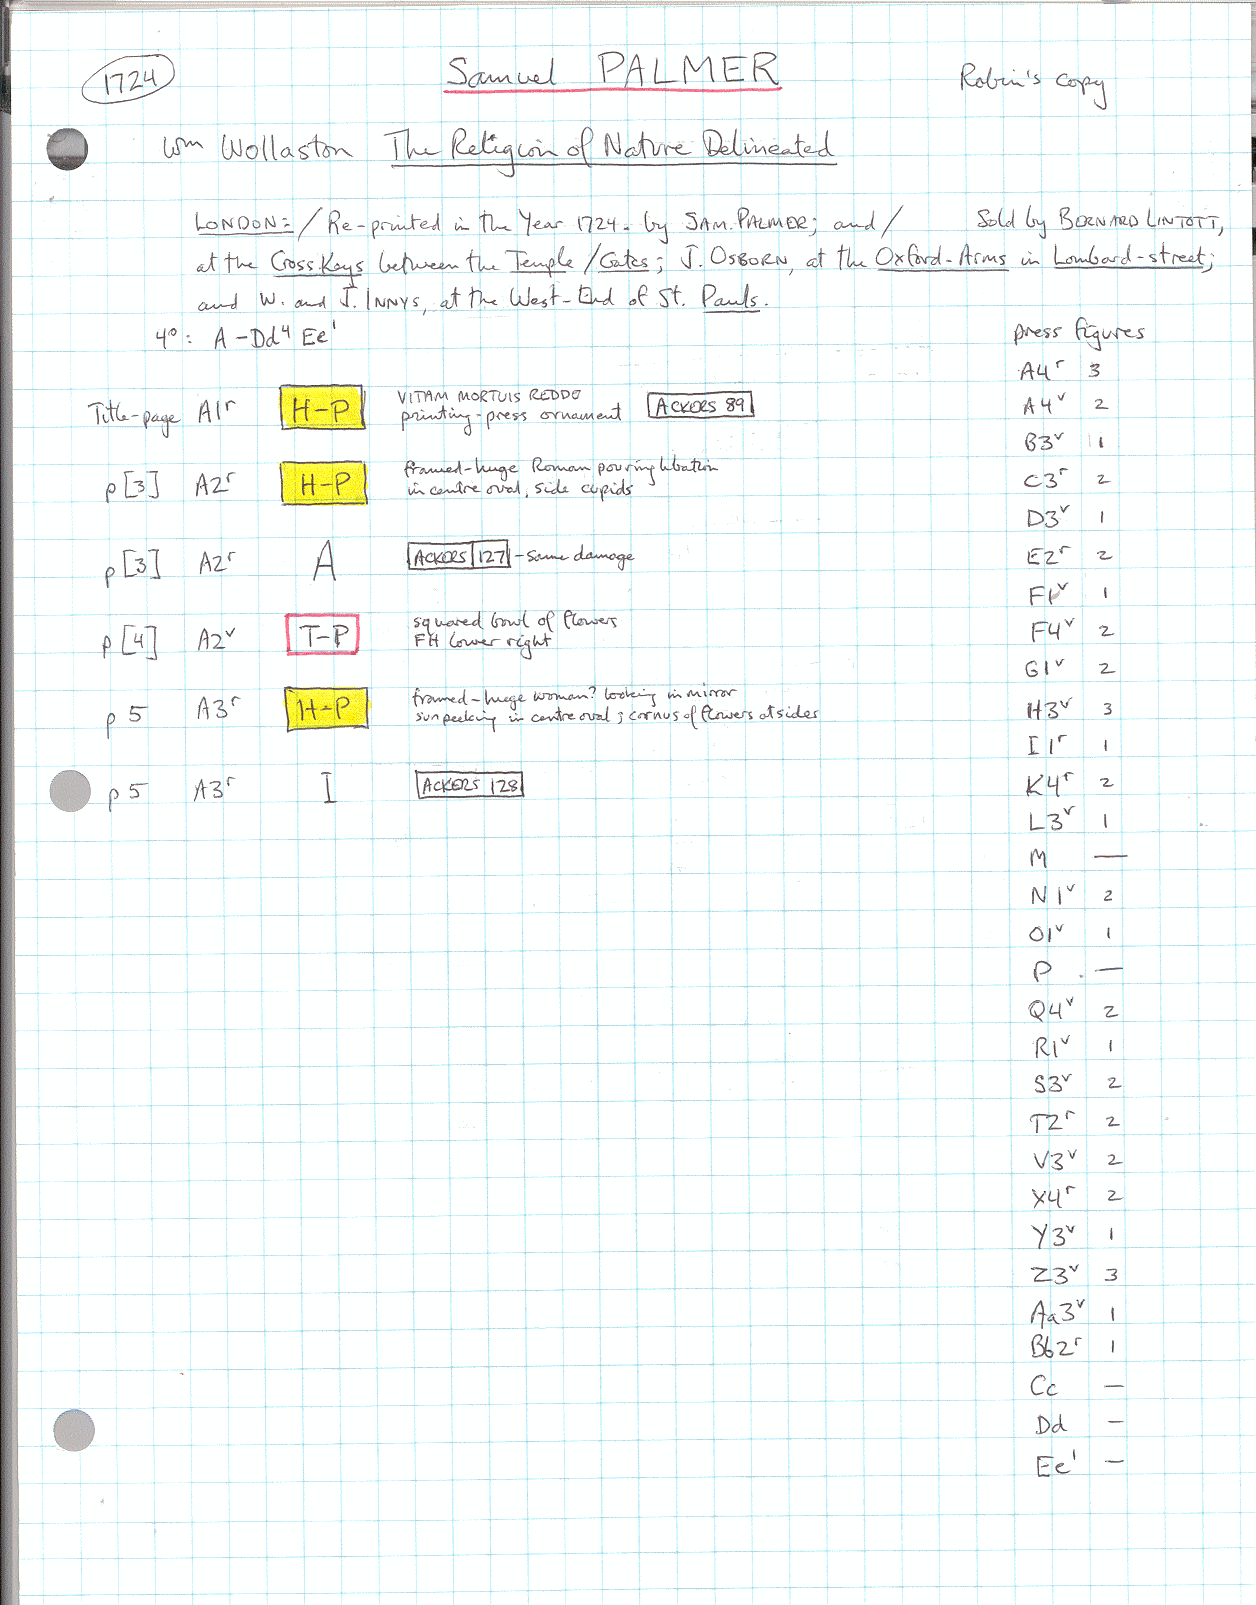 1724
Samuel PALMER
Robin's copy
Wm Wollaston The Religion of Nature Delineated
LONDON: / Re-printed in the Year 1724. by SAM. PALMER; and / Sold by BERNARD LINTOTT,
at the Cross.Keys between the Temple / Gates; J. OSBORN, at the Oxford-Arms in Lombard-street;
and W. and J. INNYS, at the West-End of St. Pauls.
4°: A-Dd⁴ Ee¹
Title-page A1ʳ H-P VITAM MORTUIS REDDO
printing-press ornament ACKERS 89
p [3] A2ʳ H-P framed-huge Roman pouring libation
in centre oval, side cupids
p [3] A2ʳ A ACKERS 127 - same damage
p [4] A2ᵛ T-P squared bowl of flowers
FH lower right
p 5 A3ʳ H-P framed-huge woman? looking in mirror
sun peeking in centre oval; cornus of flowers at sides
p 5 A3ʳ I ACKERS 128
press figures
A4ʳ 3
A4ᵛ 2
B3ᵛ 1
C3ʳ 2
D3ᵛ 1
E2ʳ 2
F1ᵛ 1
F4ᵛ 2
G1ᵛ 2
H3ᵛ 3
I1ʳ 1
K4ʳ 2
L3ᵛ 1
M —
N1ᵛ 2
O1ᵛ 1
P —
Q4ᵛ 2
R1ᵛ 1
S3ᵛ 2
T2ʳ 2
V3ᵛ 2
X4ʳ 2
Y3ᵛ 1
Z3ᵛ 3
Aa3ᵛ 1
Bb2ʳ 1
Cc —
Dd —
Ee¹ —